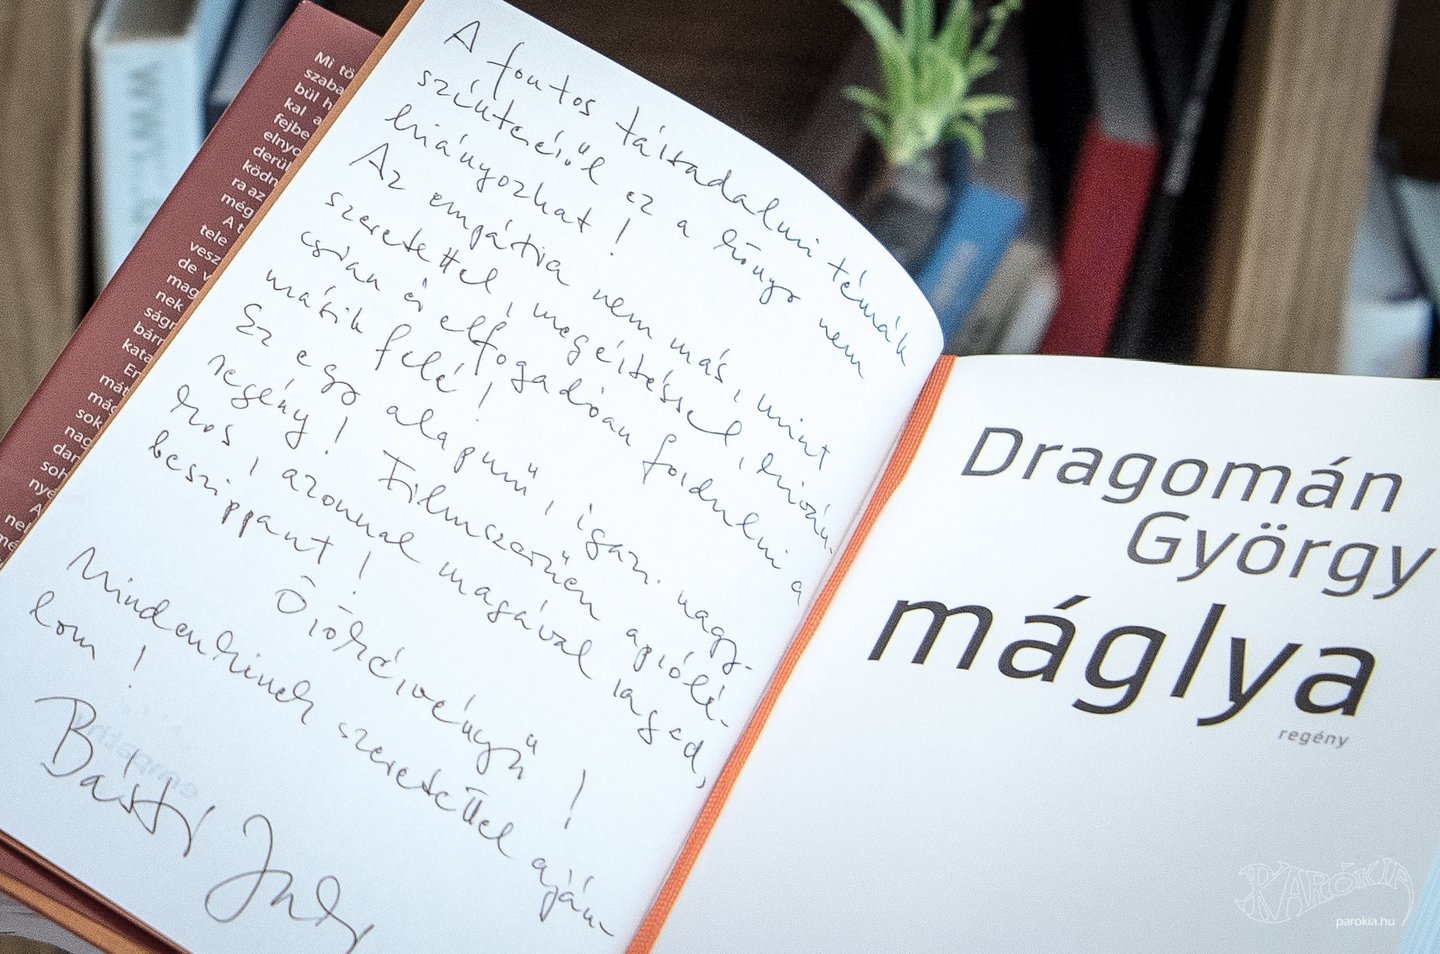 Mi tö
szaba
bül h
kal a
fejbe
elnyo
derül
ködn
ra az
még
A t
tele
vesz
de v
mag
nek
ságr
bárr
kata
Er
mát
mác
sok
nag
dar
soh
nye
A
nel
mé
A fontos társadalmi témák
színteréről ez a könyv nem
hiányozhat!
Az empátia nem más, mint
szeretettel, megértéssel, kíván-
csian és elfogadóan fordulni a
másik felé!
Ez egy alapmű, igazi nagy-
regény! Filmszerűen aprólé-
kos, azonnal magával ragad,
beszippant!
Örökérvényű!
Mindenkinek szeretettel aján
lom!
Básti Juli
Dragomán
György
máglya
regény
www.
PARÓKIA
parokia.hu